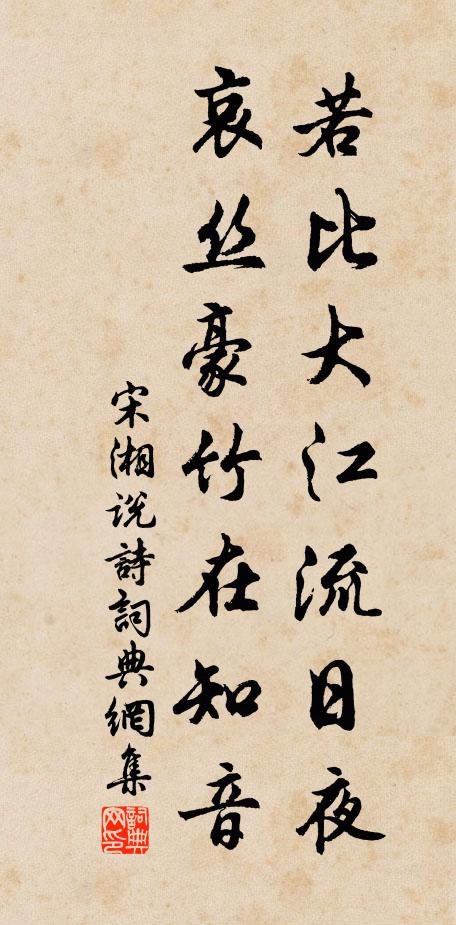 若比大江流日夜
哀丝豪竹在知音
宋湘说詩詞典網集
詞典网印